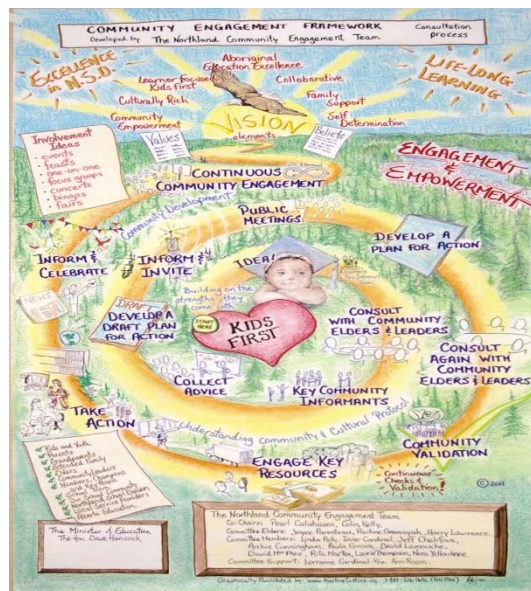 COMMUNITY ENGAGEMENT FRAMEWORK
Developed by: The Northland Community Engagement Team
Consultation
process
EXCELLENCE
in N.S.D.
LIFE-LONG
LEARNING
Aboriginal
Education Excellence
Learner focused
Kids first
Collaborative
Culturally Rich
Family
Support
Community
Empowerment
Self
Determination
VISION
elements
Values
Beliefs
Involvement
Ideas
- events
- feasts
- one-on-one
- focus groups
- concerts
- bingos
- fairs
CONTINUOUS
COMMUNITY ENGAGEMENT
ENGAGEMENT
&
EMPOWERMENT
Community Development
PUBLIC
MEETINGS
DEVELOP A
PLAN FOR ACTION
INFORM &
CELEBRATE
INFORM &
INVITE
IDEA!
Building on the
strengths they
come with
NEWS
DRAFT
DEVELOP A
DRAFT PLAN
FOR ACTION
START
HERE
KIDS
FIRST
CONSULT
WITH COMMUNITY
ELDERS & LEADERS
CONSULT
AGAIN WITH
COMMUNITY
ELDERS & LEADERS
COLLECT
ADVICE
KEY COMMUNITY
INFORMANTS
TAKE
ACTION
Understanding Community & Cultural Protocol
COMMUNITY
VALIDATION
ENGAGE KEY
RESOURCES
Continuous
Checks &
Validation!
Kids and Youth
Parents
Grandparents
Extended Family
Elders
Community Leaders
Members, Champions
School
Local Service Providers
Alberta Education
© 2011
The Minister of Education
The Hon. Dave Hancock
The Northland Community Engagement Team
Co-Chairs: Pearl Calahasen, Colin Kelly
Committee Elders: Joyce Parenteau, Pauline Harry Lawrence
Committee Members: Linda Pelly, Irvar Cardinal, Jeff Chalifoux,
Archie Cunningham, Paula Giroux, David Lamouche,
David Mc Phee, Rita Marten, Laurie Thompson, Nora Yellowknee
Committee Support: Lorraine Cardinal-Roy, Ann Rosin
Graphically Facilitated by: